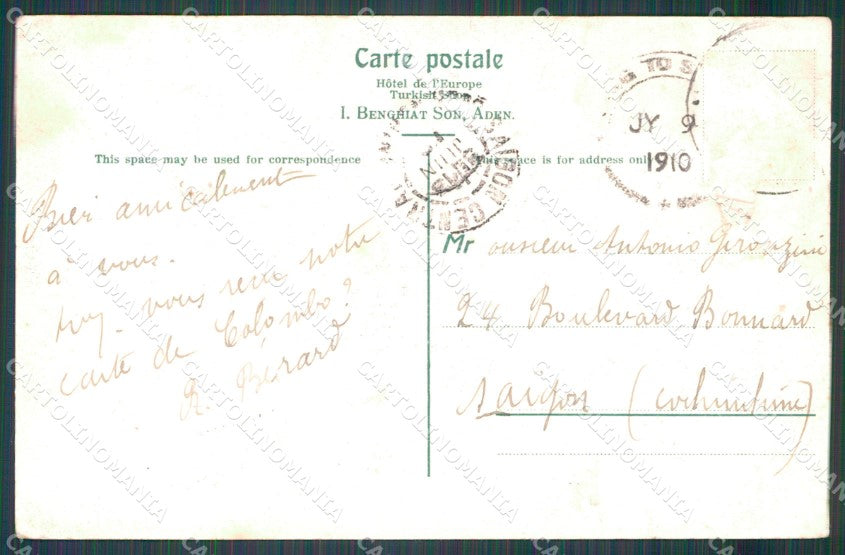 Carte postale
Hôtel de l'Europe
Turkish Shop
I. BENGHIAT SON, ADEN.
This space may be used for correspondence
This space is for address only
Bien amicalement
à vous.
vous reçu notre
carte de Colombo?
R. Bérard
Mr onsieur Antonio
24 Boulevard Bonnard
Saigon (Cochinchine)
TO S
JY 9
1910
SAIGON CENTRAL
CARTOLINOMANIA